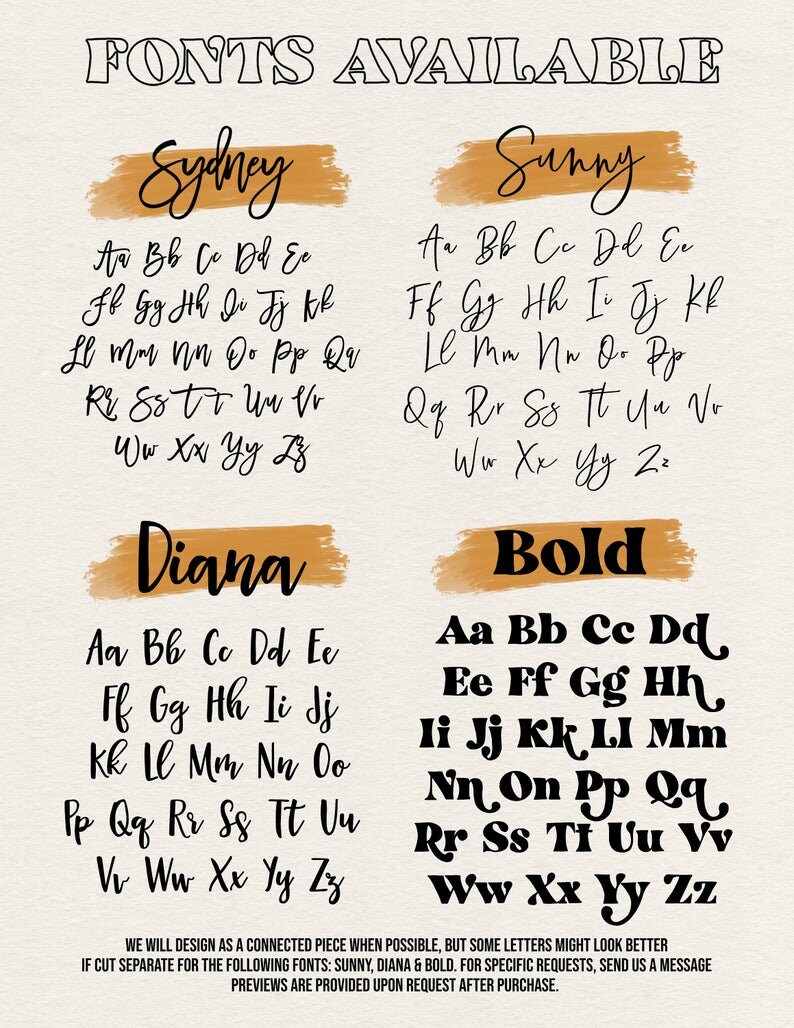 FONTS AVAILABLE
Sydney
Aa Bb Cc Dd Ee
Ff Gg Hh Ii Jj Kk
Ll Mm Nn Oo Pp Qq
Rr Ss Tt Uu Vv
Ww Xx Yy Zz
Sunny
Aa Bb Cc Dd Ee
Ff Gg Hh Ii Jj Kk
Ll Mm Nn Oo Pp
Qq Rr Ss Tt Uu Vv
Ww Xx Yy Zz
Diana
Aa Bb Cc Dd Ee
Ff Gg Hh Ii Jj
Kk Ll Mm Nn Oo
Pp Qq Rr Ss Tt Uu
Vv Ww Xx Yy Zz
Bold
Aa Bb Cc Dd
Ee Ff Gg Hh
Ii Jj Kk Ll Mm
Nn On Pp Qq
Rr Ss Tt Uu Vv
Ww Xx Yy Zz
WE WILL DESIGN AS A CONNECTED PIECE WHEN POSSIBLE, BUT SOME LETTERS MIGHT LOOK BETTER
IF CUT SEPARATE FOR THE FOLLOWING FONTS: SUNNY, DIANA & BOLD. FOR SPECIFIC REQUESTS, SEND US A MESSAGE
PREVIEWS ARE PROVIDED UPON REQUEST AFTER PURCHASE.